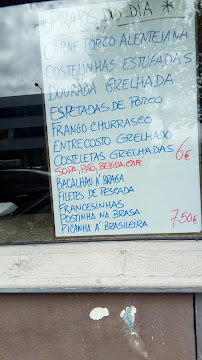 * PRATOS DO DIA *
CARNE PORCO ALENTEJANA
COSTELINHAS ESTUFADAS
DOURADA GRELHADA
ESPETADAS DE PORCO
FRANGO CHURRASCO
ENTRECOSTO GRELHADO
COSTELETAS GRELHADAS 6€
SOPA, PÃO, BEBIDA, CAFÉ
BACALHAU Á BRAGA
FILETES DE PESCADA
FRANCESINHAS
POSTINHA NA BRASA 7.50€
PICANHA Á BRASILEIRA